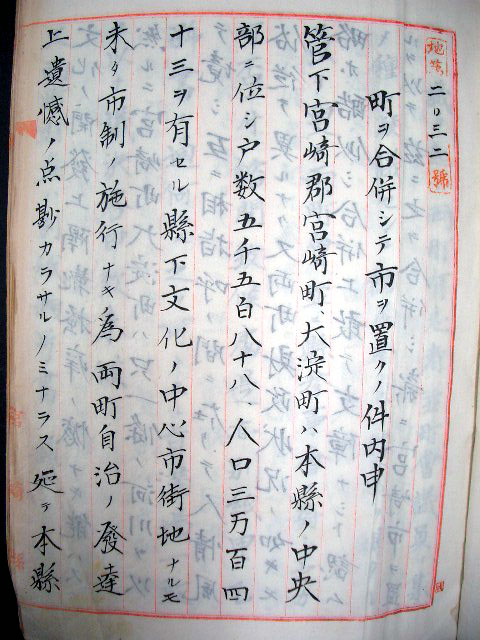 地第二〇三二號
町ヲ合併シテ市ヲ置クノ件内申
管下宮崎郡宮崎町、大淀町ハ本縣ノ中央
部ニ位シ戸数五千五百八十八、人口三万百四
十三ヲ有セル縣下文化ノ中心市街地ナルモ
未タ市制ノ施行ナキ為両町自治ノ發達
上遺憾ノ点尠カラサルノミナラス延テ本縣